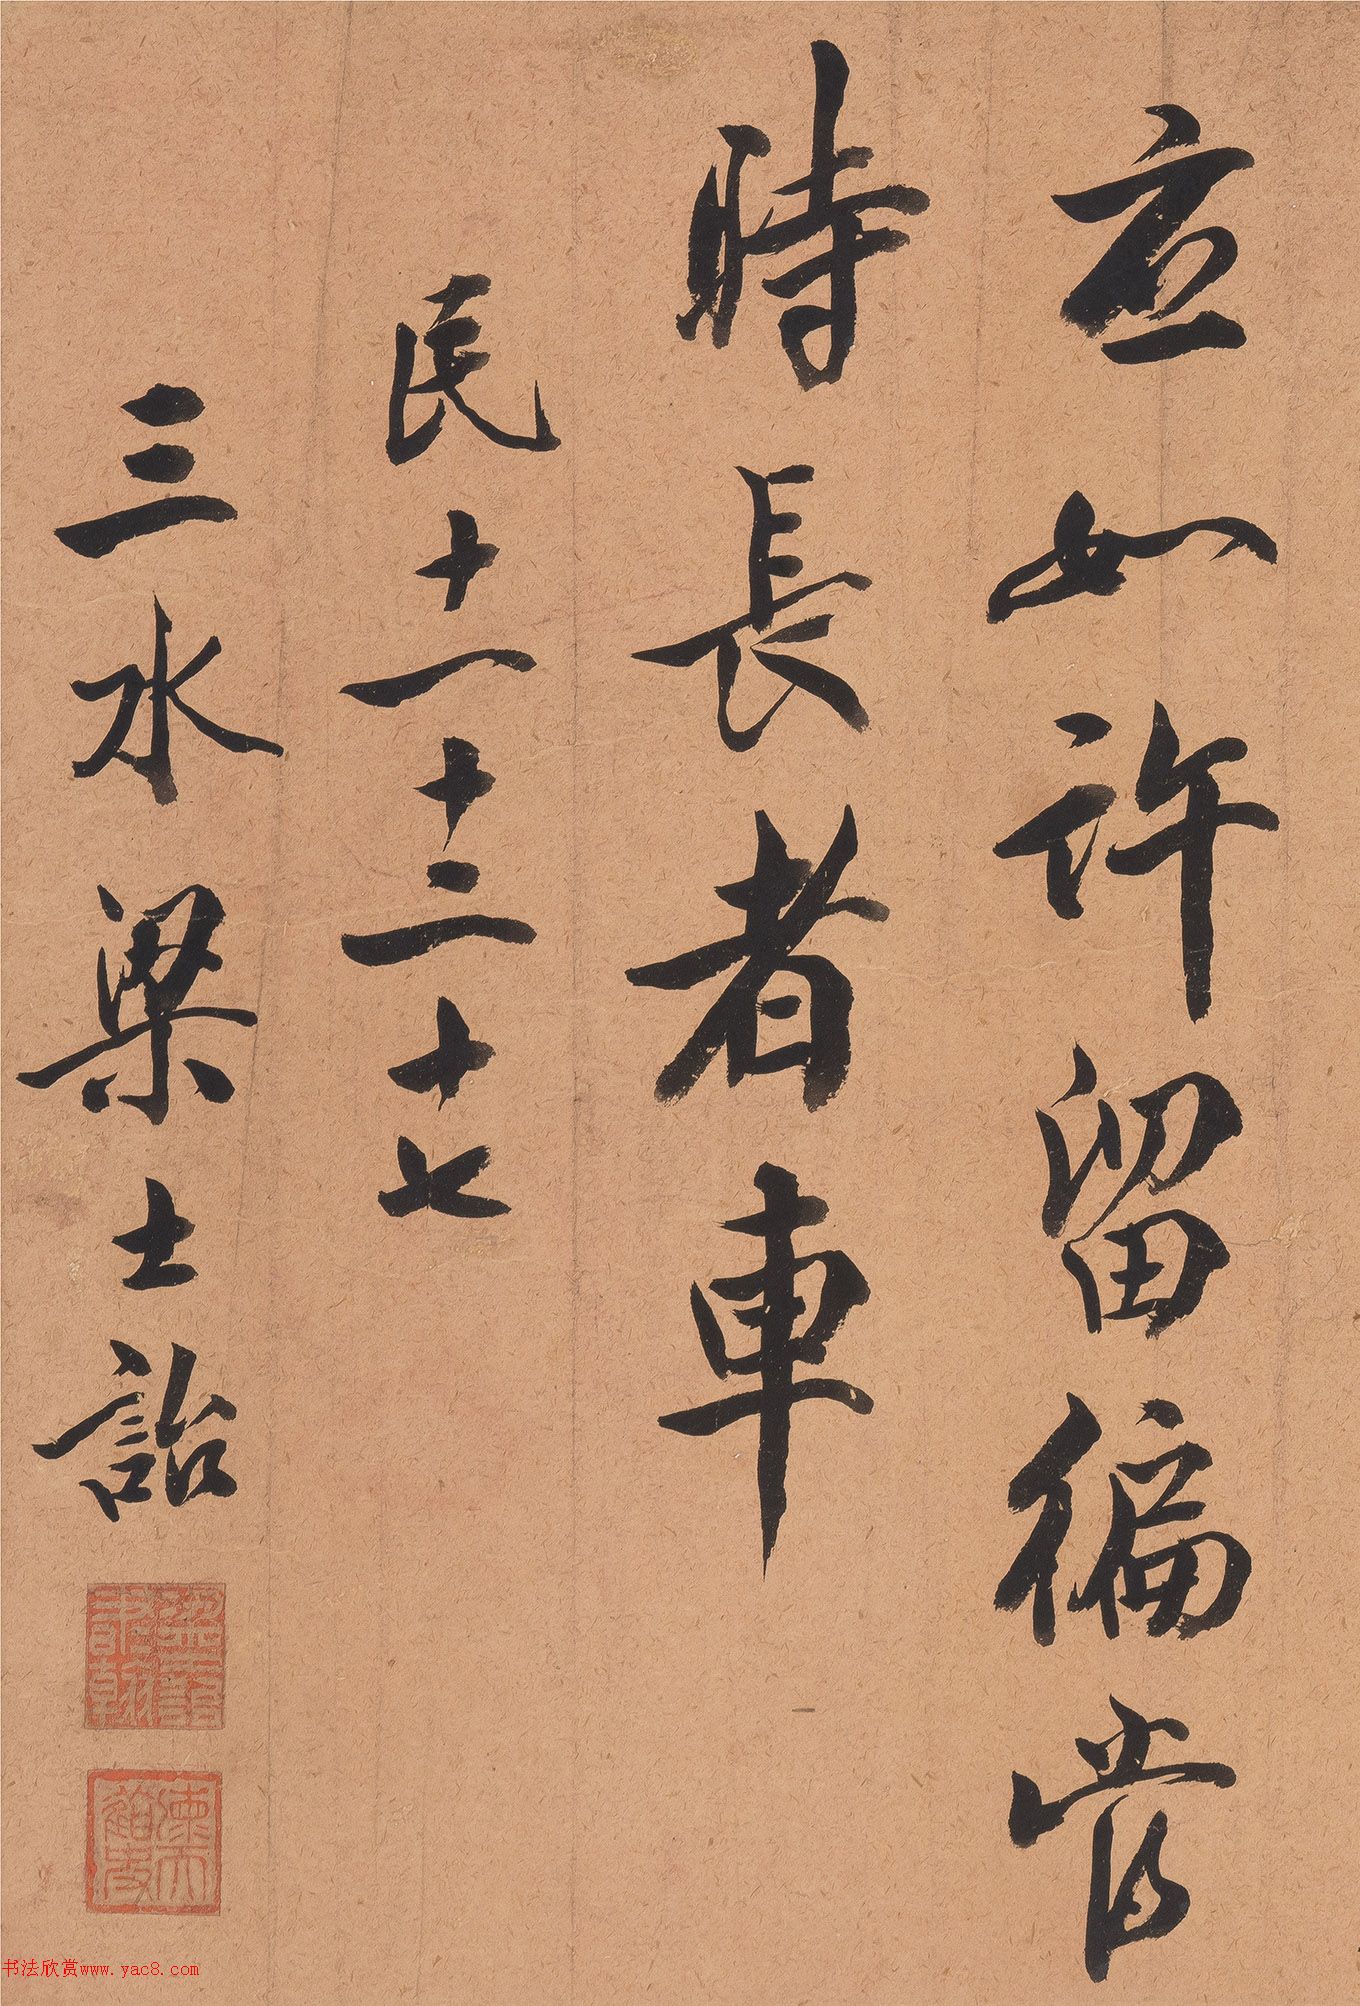 立如許留徧常
時長者車
民十一十二十七
三水梁士詒
书法欣赏www.yac8.com